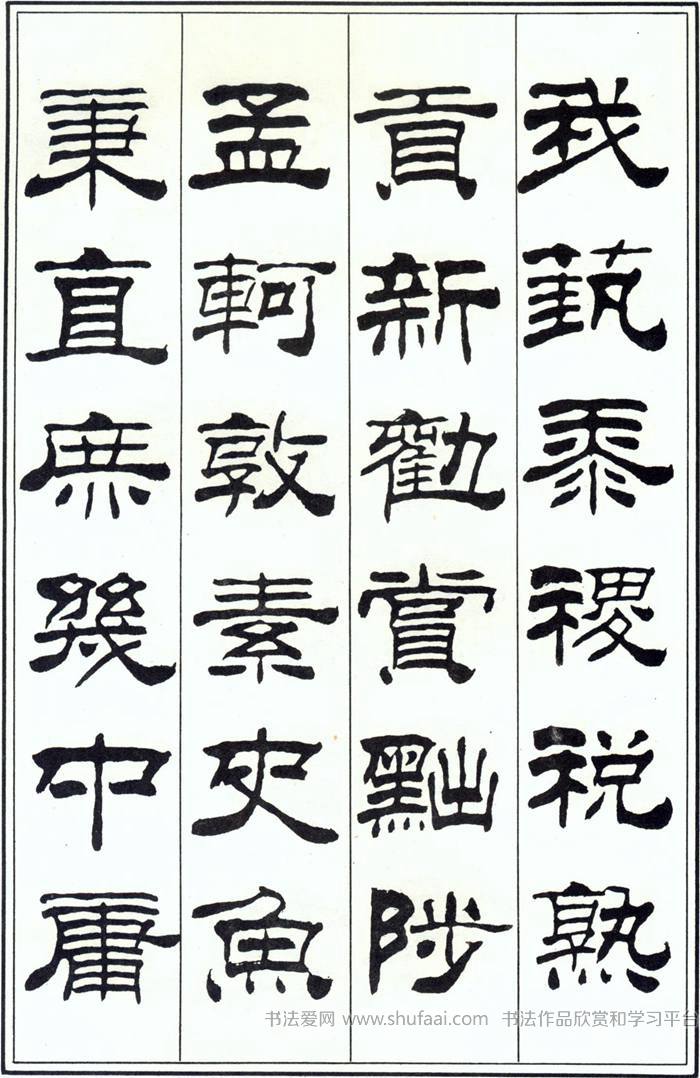 我藝黍稷稅熟
貢新勸賞黜陟
孟軻敦素史魚
秉直庶幾中庸
书法爱网 www.shufaai.com 书法作品欣赏和学习平台